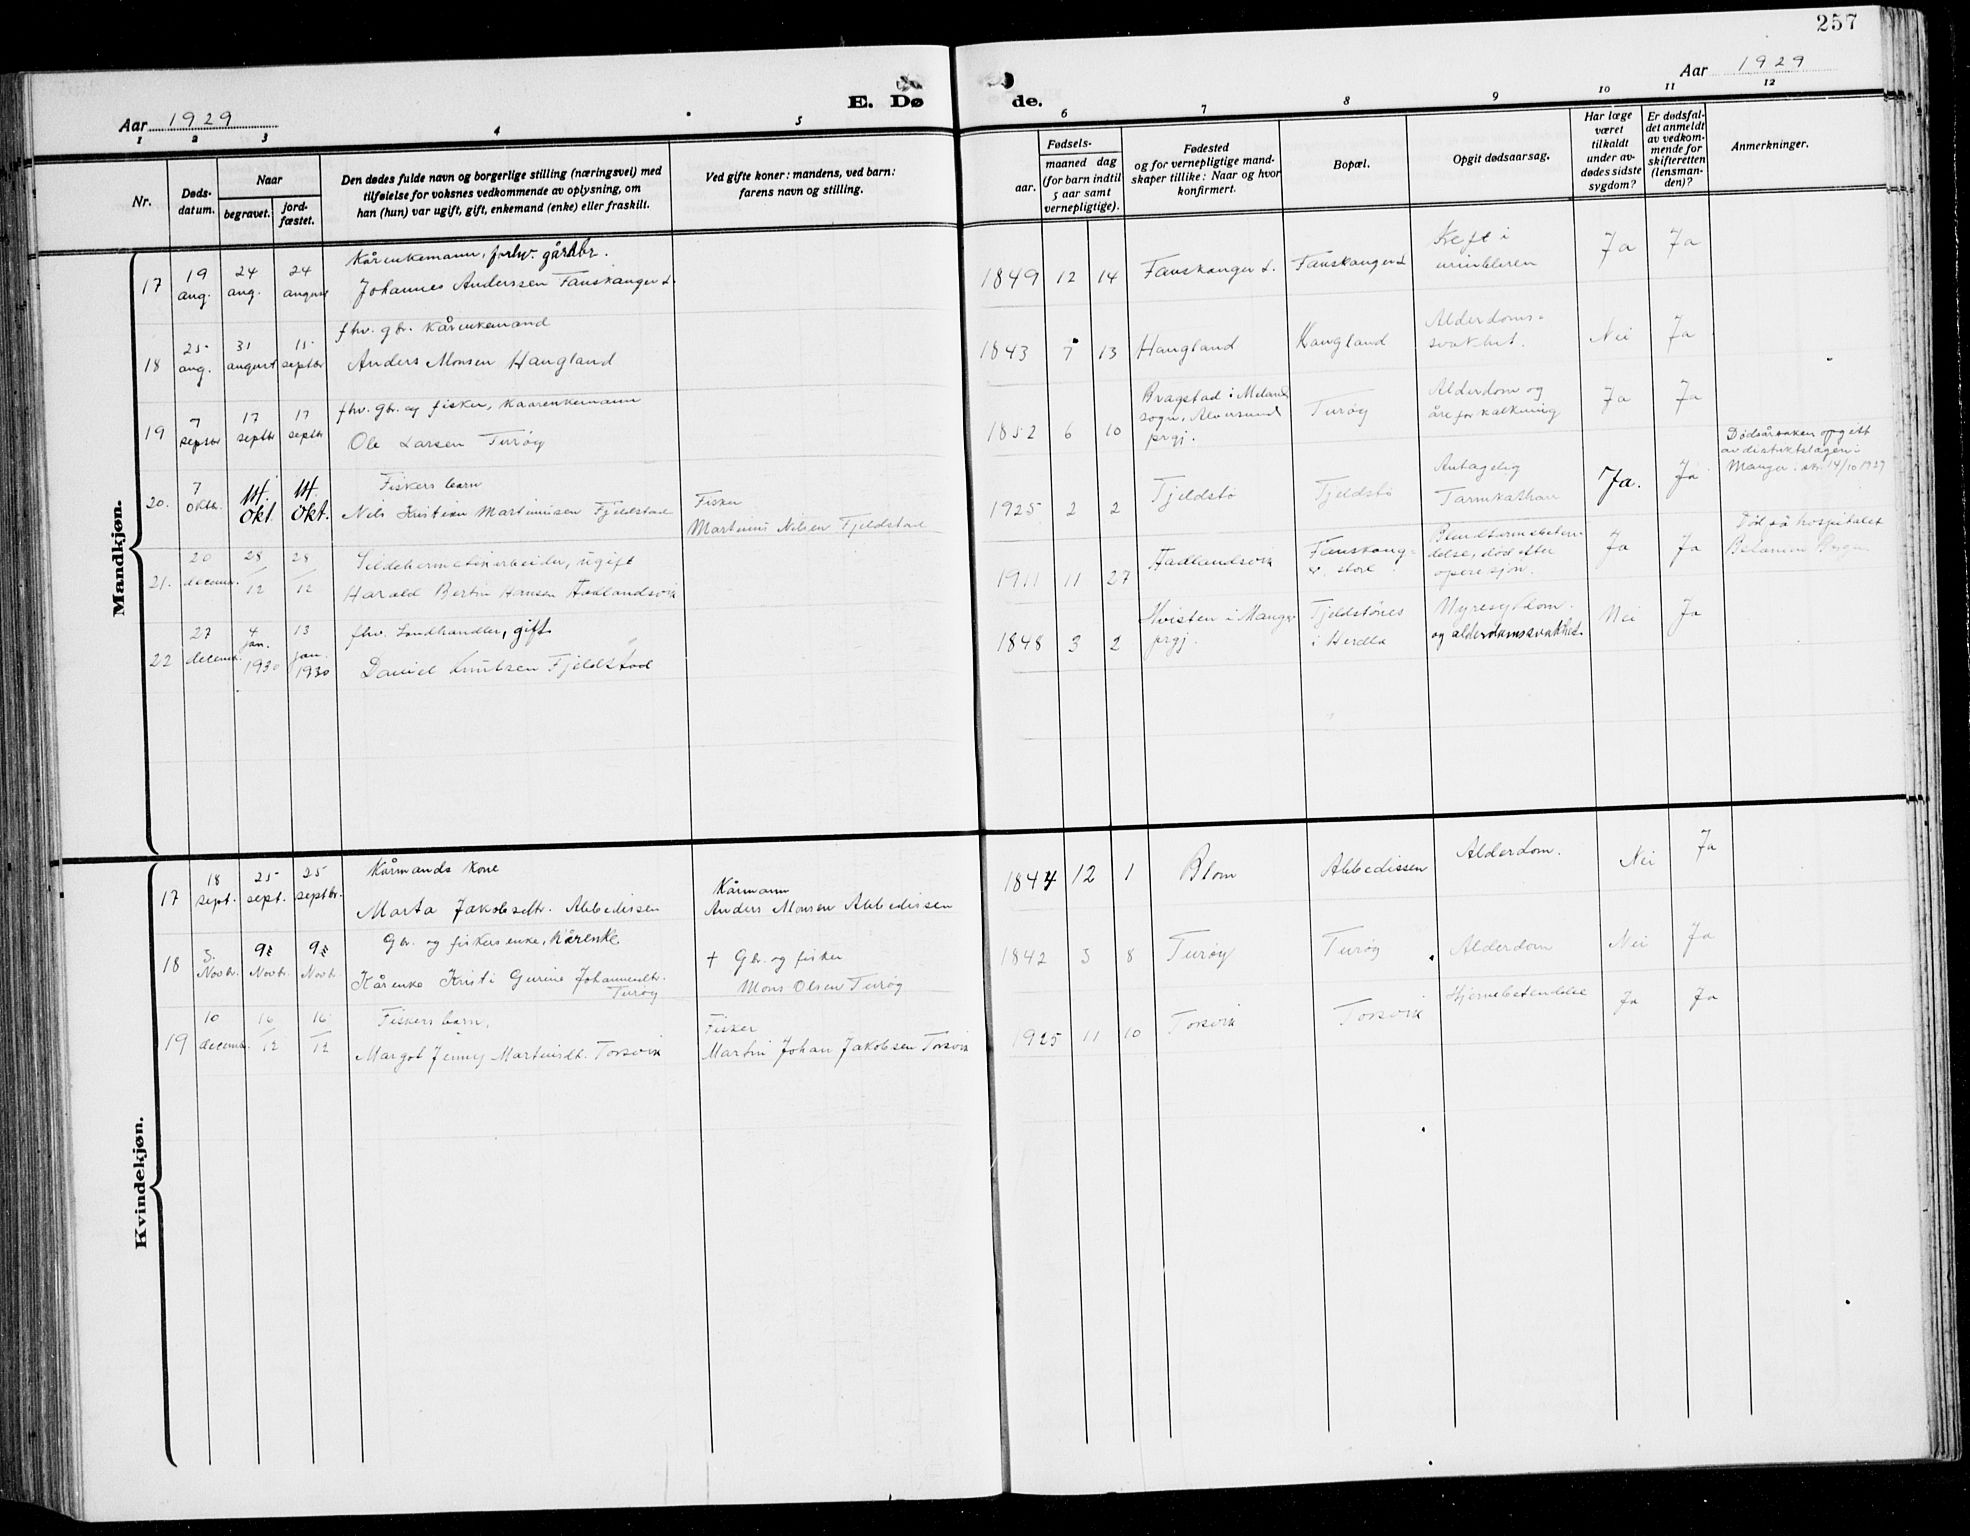 257
Aar 1929
E. Dø
de.
Aar 1929
1 2 3 4 5 6 7 8 9 10 11 12
Nr.
Døds-
datum.
Naar
begravet.
jord-
fæstet.
Den dødes fulde navn og borgerlige stilling (næringsvei) med
tilføielse for voksnes vedkommende av oplysning, om
han (hun) var ugift, gift, enkemand (enke) eller fraskilt.
Ved gifte koner: mandens, ved barn:
farens navn og stilling.
Fødsels-
aar.
maaned dag
(for barn indtil
5 aar samt
vernepligtige).
Fødested
og for vernepligtige mand-
skaper tillike: Naar og hvor
konfirmert.
Bopæl.
Opgit dødsaarsag.
Har læge
været
tilkaldt
under av-
dødes sidste
sygdom?
Er dødsfal-
det anmeldt
av vedkom-
mende for
skifteretten
(lensman-
den)?
Anmerkninger.
Mandkjøn.
17
19
aug.
24
aug.
24
august
Kårenkemann, forhv. gårdbr.
Johannes Anderssen Fauskanger L.
1849 12 14
Fauskanger L.
Fauskanger L
Kreft i
urinblæren
Ja
Ja
18
25
aug.
31
august
15
septbr
fhv. gbr. kårenkemand
Anders Monsen Haugland
1843 7 13
Haugland
Haugland
Alderdoms-
svakhet.
Nei
Ja
19
7
septbr
17
septbr
17
septbr
fhv. gbr. og fisker, kaarenkemann
Ole Larsen Turøy
1852 6 10
Bragstad i Meland
sogn, Alversund
prgj.
Turøy
Alderdom og
åreforkalkning
Ja
Ja
20.
7
oktbr.
14.
okt.
14.
okt.
Fiskers barn
Nels Kristian Martinusen Fjeldstad
Fisker
Martinus Nilsen Fjeldstad
1925 2 2
Tjeldstø
Tjeldstø
Antagelig
Tarmkathar
Ja.
Ja
Dødsårsaken opgitt
av distriktslægen i
Manger. skr. 14/10 1929
21.
20
decem.
28/12
28/12
Sildehermetikarbeider, ugift
Harald Bertin Hansen Hadlandsvik
1911 11 27
Hadlandsvik
Fauskang-
er, store
Blindtarmsbeten-
delse, død efter
operasjon.
Ja
Ja
Død på hospitalet
22
27
decem.
4
jan.
1930
13
jan.
1930
fhv. Landhandler, gift
Daniel Knutsen Fjeldstad
1848 3 2
Hvisten i Manger
prgj.
Tjeldstønes
i Herdla
Nyresykdom.
og alderdomssvakhet.
Nei
Ja
Kvindekjøn.
17
18
sept.
25
sept.
25
septbr.
Kårmands kone
Marta Jakobsdtr. Abbedissen
Kårmann
Anders Monsen Abbedissen
1844 12 1
Blom
Abbedissen
Alderdom.
Nei
Ja
18
3.
Novbr.
9.
Novbr.
9.
Novbr.
Gbr. og fiskers enke, kårenke
Kårenke Kristi Gurine Johannesdtr.
Turøy
† Gbr. og fisker
Mons Olsen Turøy
1842 3 8
Turøy
Turøy
Alderdom
Nei
Ja
19
10
decem.
16/12
16/12
Fiskers barn,
Margot Jenny Martinsdt. Torsvik
Fisker
Martin Johan Jakobsen Torsvik
1925 11 10
Torsvik
Torsvik
Hjernebetendelse
Ja
Ja